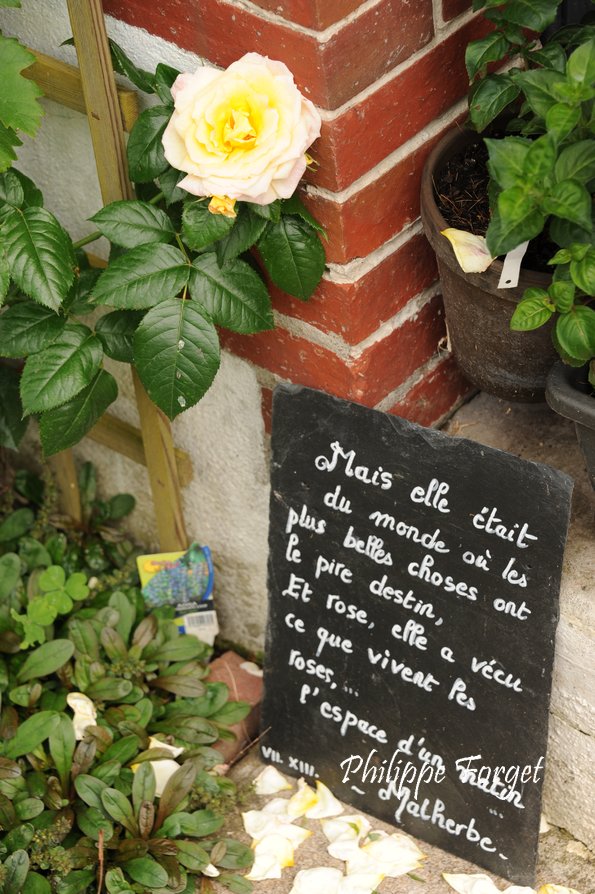 Mais elle était
du monde où les
plus belles choses ont
le pire destin,
Et rose, elle a vécu
ce que vivent les
roses,...
l'espace d'un matin
...
~ Malherbe~
VII. XIII.
Philippe Forget